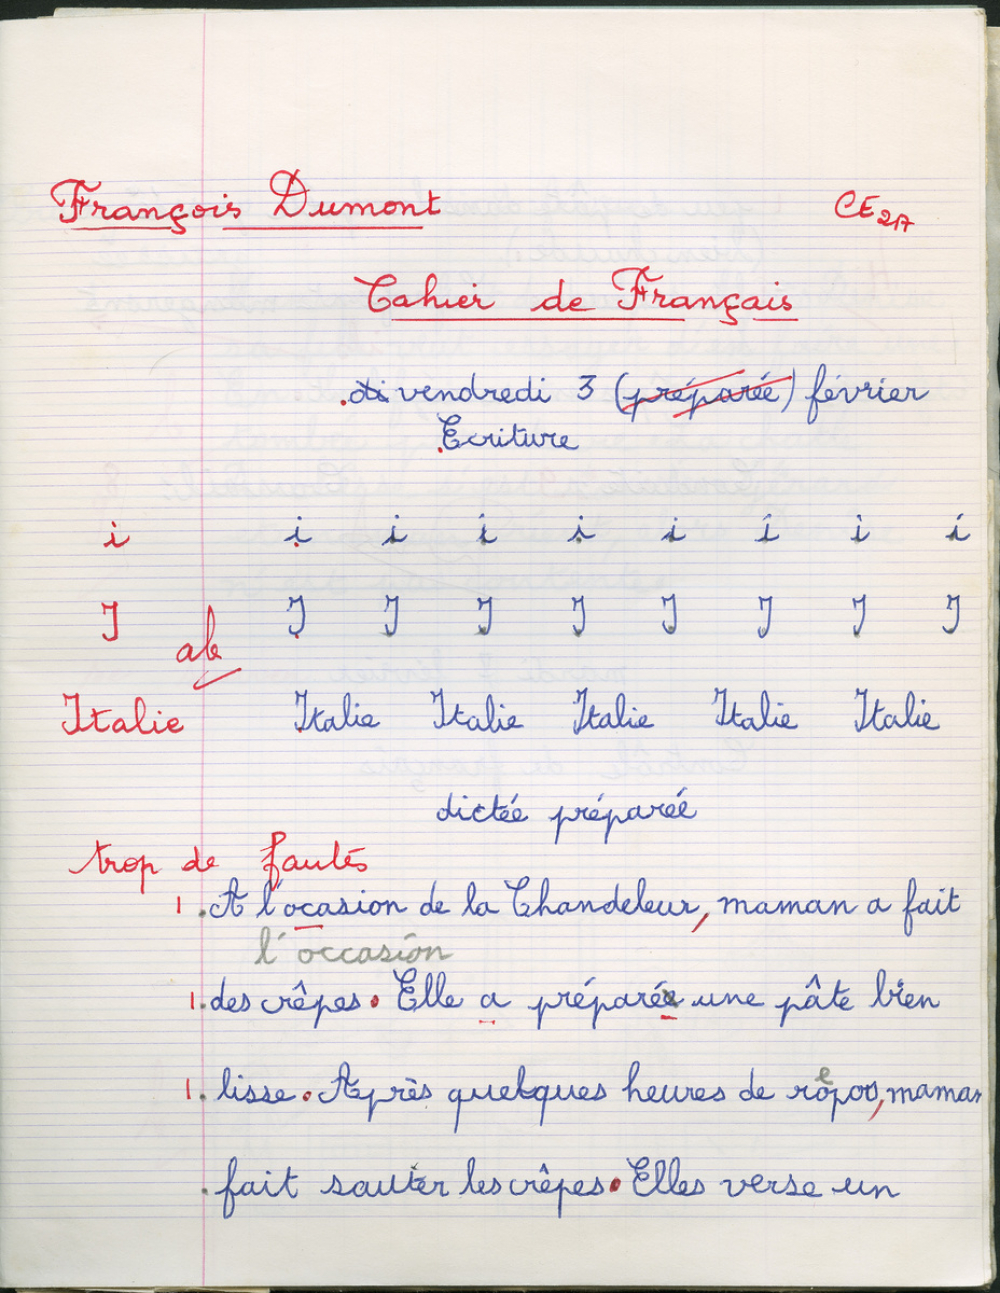 François Dumont CE2A
Cahier de Français
di vendredi 3 (préparée) février
Ecriture
i i i i i i i i i
I I I I I I I I I
ab
Italie Italie Italie Italie Italie Italie
dictée préparée
trop de fautes
1 A l'ocasion de la Chandeleur, maman a fait
l'occasion
1. des crêpes. Elle a préparée une pâte bien
1. lisse. Après quelques heures de repos, maman
fait sauter les crêpes. Elles verse un